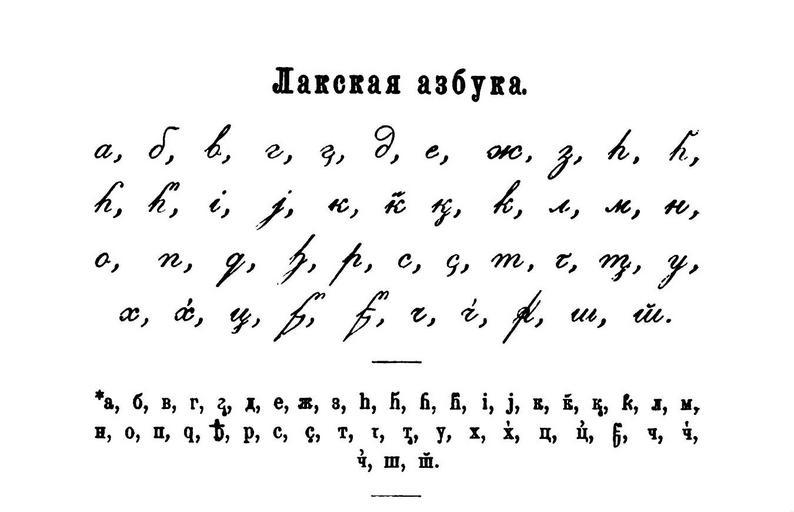 Лакская азбука.
а, б, в, г, г̨, д, е, ж, з, һ, һ̄,
ɦ, ɦ̄, і, ј, к, к̆, қ, k, л, м, н,
о, п, q, ђ, р, с, ҫ, т, τ, т̨, у,
х, х̓, ц, ч, ч̓, ш, ш̆.
*а, б, в, г, г̨, д, е, ж, з, һ, һ̄, ɦ, ɦ̄, і, ј, к, к̆, қ, k, л, м,
н, о, п, q, р, с, ҫ, т, τ, т̨, у, х, х̓, ц, ц̓, ч, ч̓,
ч̓, ш, ш̆.